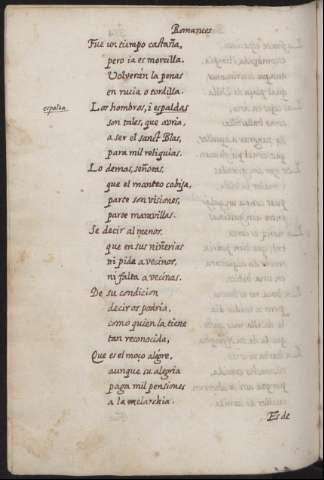 Romances
Fue un tiempo castaña,
pero ia es morcilla.
Volveràn la penas
en rucia o tordilla.
espalda.
Los hombros, i espaldas
son tales, que avria,
a ser el sanct Blas,
para mil reliquias.
Lo demas, señoras,
que el manteo cobija,
parte son visiones,
parte maravillas.
Se decir al menos
que en sus niñerias
ni pide a vecinos,
ni falta a vecinas.
De su condicion
deciros podria,
como quien la tiene
tan reconocida,
Que es el moço alegre,
aunque su alegria
paga mil pensiones
a la melarchia.
Es de